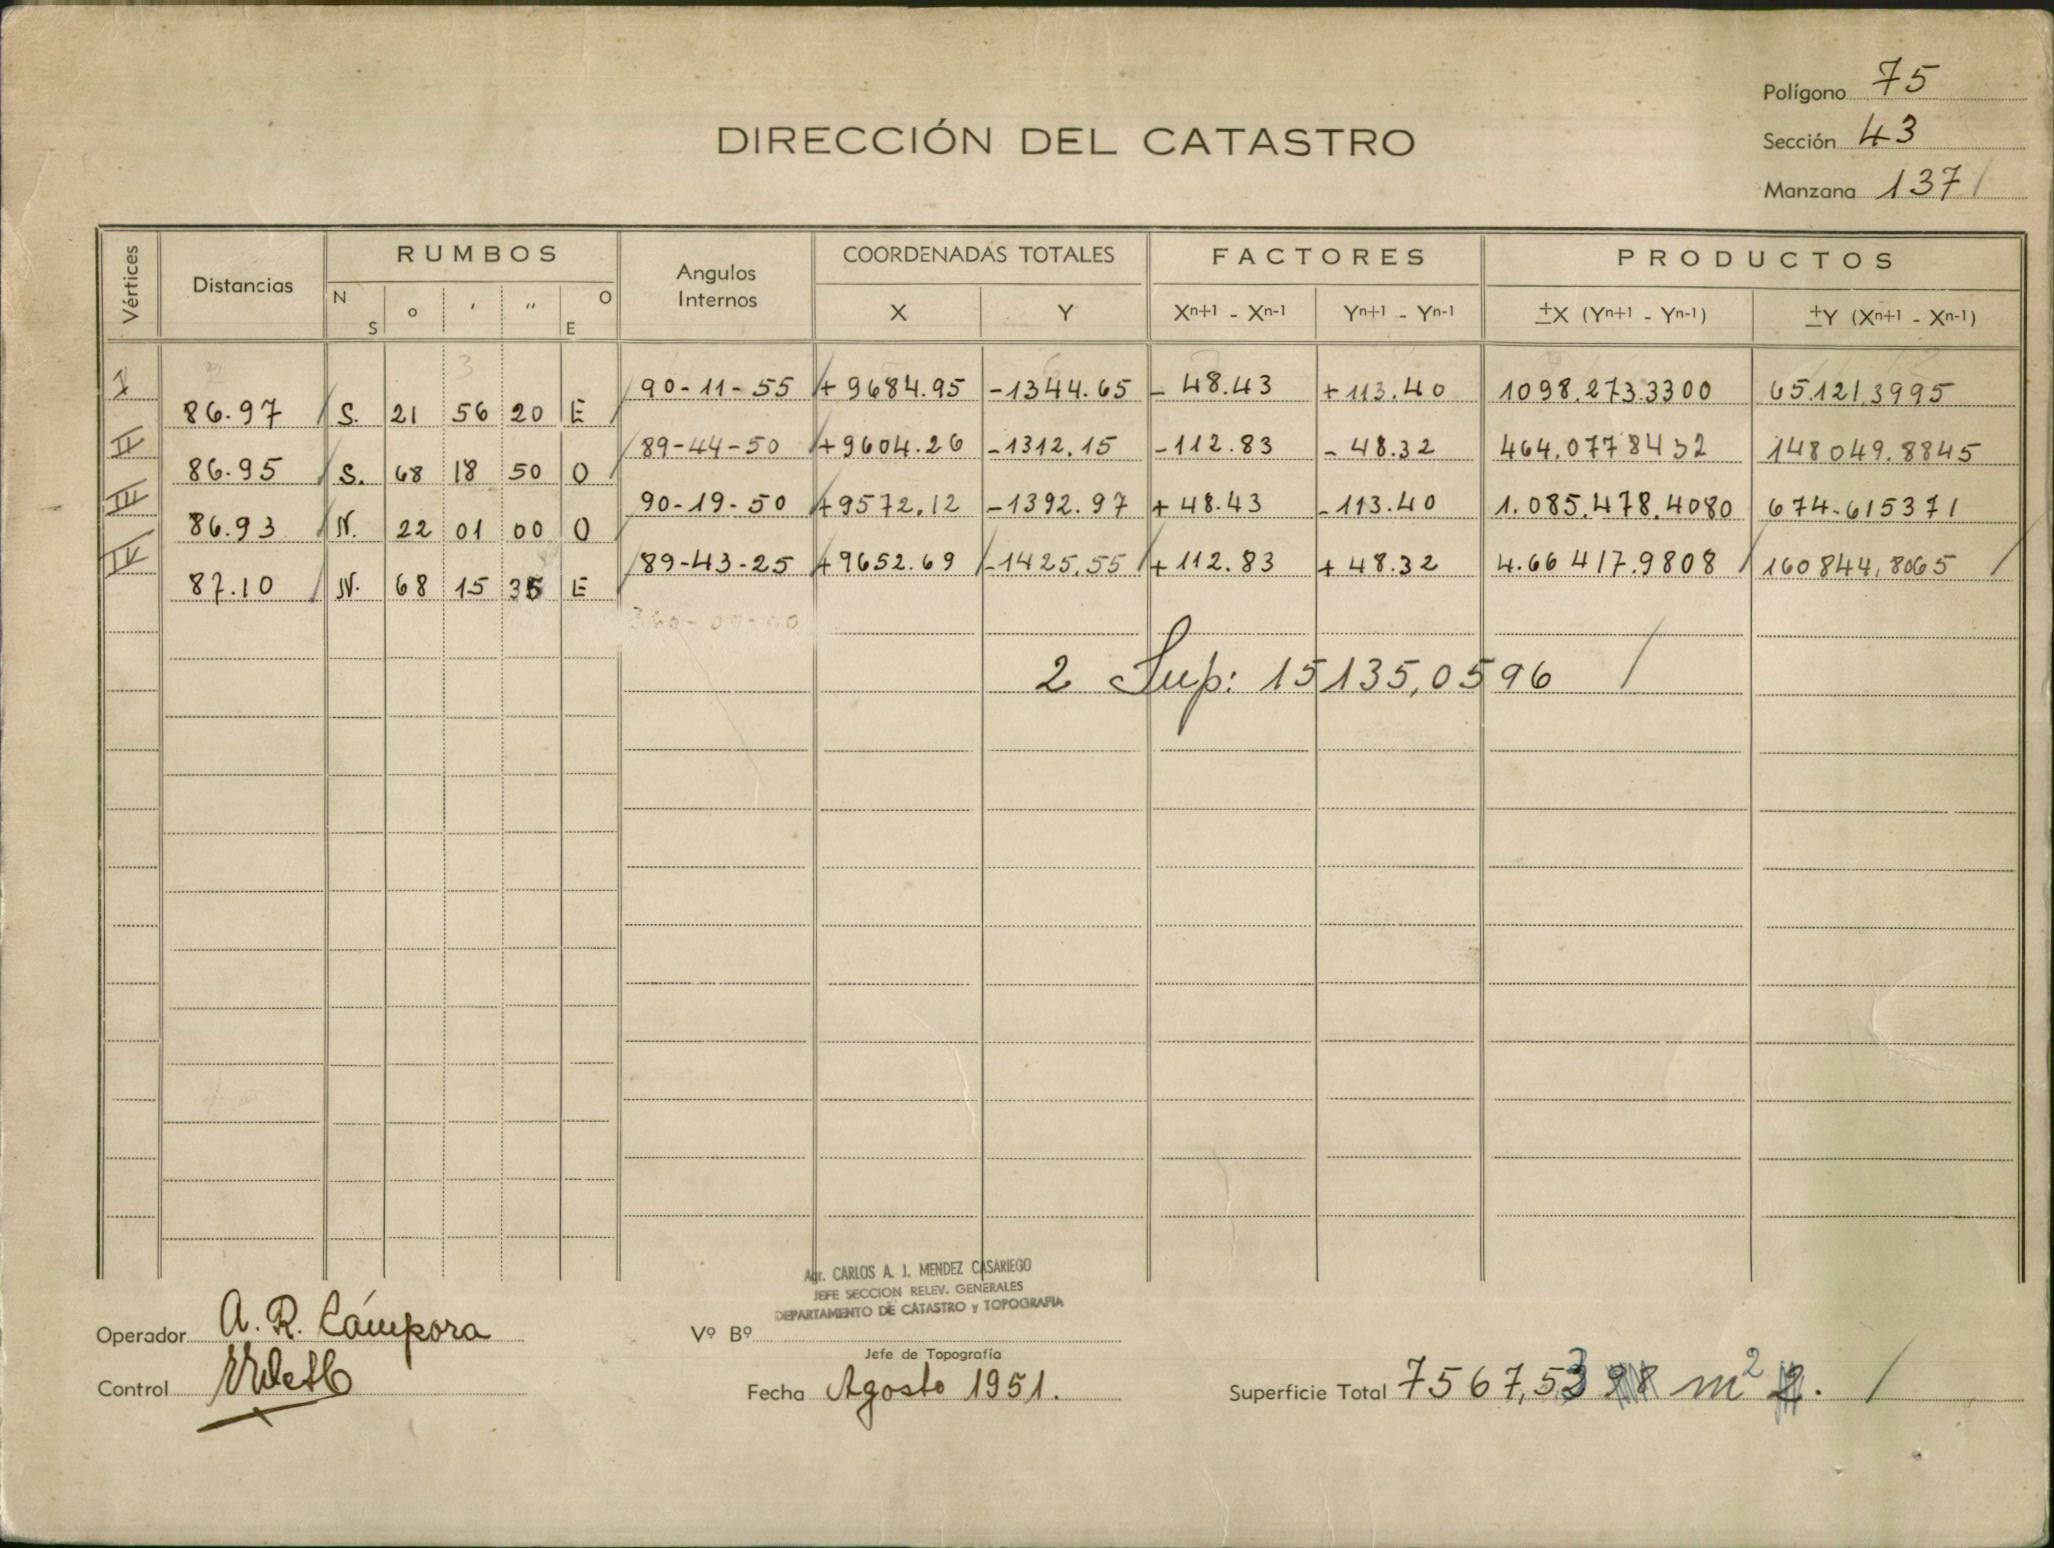 Polígono 75
DIRECCIÓN DEL CATASTRO
Sección 43
Manzana 137
Vértices Distancias RUMBOS Angulos Internos COORDENADAS TOTALES FACTORES PRODUCTOS
N S ° ' " E O X Y Xn+1 - Xn-1 Yn+1 - Yn-1 ±X (Yn+1 - Yn-1) ±Y (Xn+1 - Xn-1)
I 90-11-55 +9684.95 -1344.65 - 48.43 +113.40 1098.273.3300 65.121.3995
86.97 S. 21 56 20 E
II 89-44-50 +9604.26 -1312.15 -112.83 - 48.32 464.077 8432 148049.8845
86.95 S. 68 18 50 O
III 90-19-50 +9572.12 -1392.97 + 48.43 -113.40 1.085.478.4080 674.615371
86.93 N. 22 01 00 O
IV 89-43-25 +9652.69 -1425.55 +112.83 + 48.32 4.66 417.9808 160844,8065
87.10 N. 68 15 35 E
360-00-00
2 Sup: 15135,0596
Agr. CARLOS A. J. MENDEZ CASARIEGO
JEFE SECCION RELEV. GENERALES
DEPARTAMENTO DE CATASTRO y TOPOGRAFIA
Operador A. R. Cámpora Vº Bº
Jefe de Topografía
Control Fecha Agosto 1951. Superficie Total 7567,53 m2